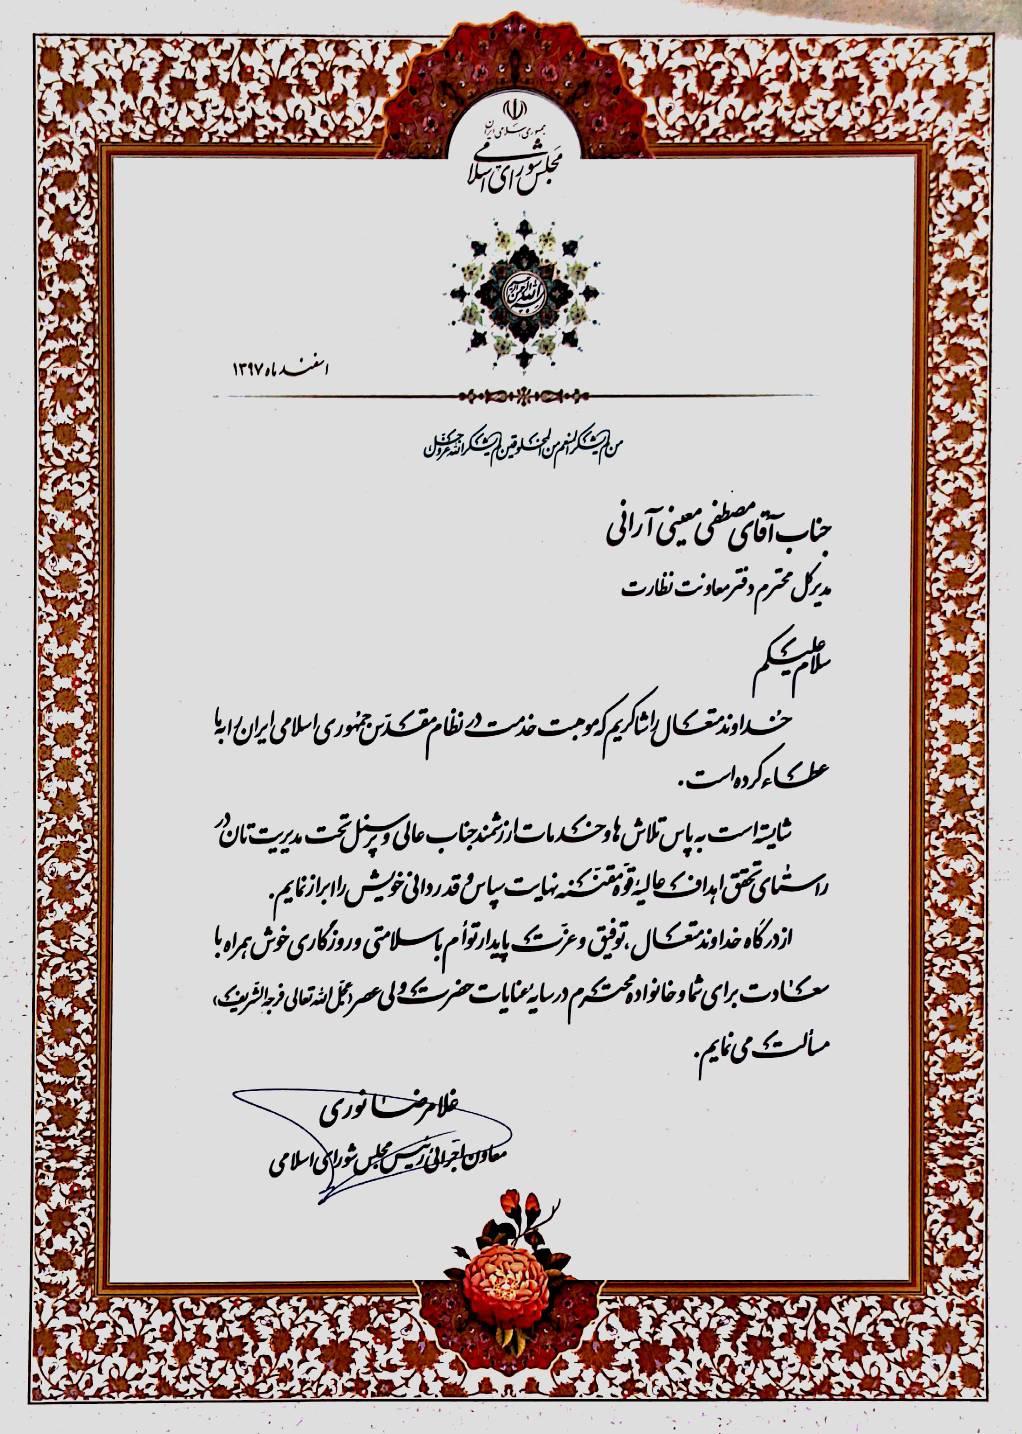 جمهوری اسلامی ایران
مجلس شورای اسلامی
بسم الله الرحمن الرحیم
اسفند ماه ۱۳۹۷
من لم یشکر المنعم من المخلوقین لم یشکر الله عزوجل
جناب آقای مصطفی معینی آرانی
مدیر کل محترم دفتر معاونت نظارت
سلام علیکم
خداوند متعال را شاکریم که موهبت خدمت در نظام مقدس جمهوری اسلامی ایران را به ما
عطاء کرده است.
شایسته است به پاس تلاش ها و خدمات ارزشمند جناب عالی و پرسنل تحت مدیریت تان در
راستای تحقق اهداف عالیه قوّه مقننه نهایت سپاس و قدردانی خویش را ابراز نمایم.
از درگاه خداوند متعال، توفیق و عزّت پایدار توأم با سلامتی و روزگاری خوش همراه با
سعادت برای شما و خانواده محترم در سایه عنایات حضرت ولی عصر (عجّل الله تعالی فرجه الشّریف)
مسألت می نمایم.
غلامرضا نوری
معاون اجرائی رئیس مجلس شورای اسلامی